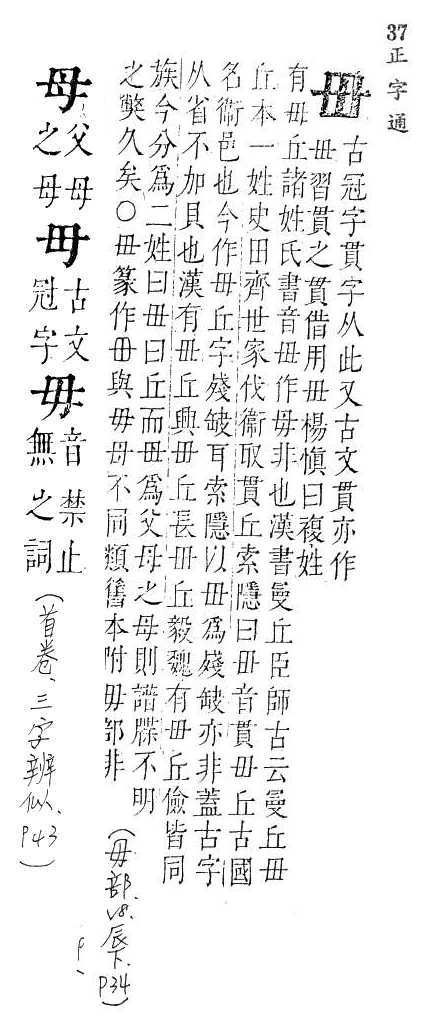 37 正字通
毌
古冠字貫字从此又古文貫亦作
毌習貫之貫借用毌楊愼曰複姓
有毌丘諸姓氏書音毌作毋非也漢書曼丘臣師古云曼丘毌
丘本一姓史田齊世家伐衞取貫丘索隱曰毌音貫毌丘古國
名衞邑也今作毌丘字殘缺耳索隱以毌爲殘缺亦非蓋古字
从省不加貝也漢有毌丘興毌丘長毌丘毅魏有毌丘儉皆同
族今分爲二姓曰毌曰丘而毌爲父母之母則譜牒不明
之獘久矣○毌篆作毌與毋母不同類舊本附毋部非
(毋部. v8. 辰下. P34)
母
父母
之母
毌
古文
冠字
毋
音禁止
無之詞
(首卷、三字辨似. P43)